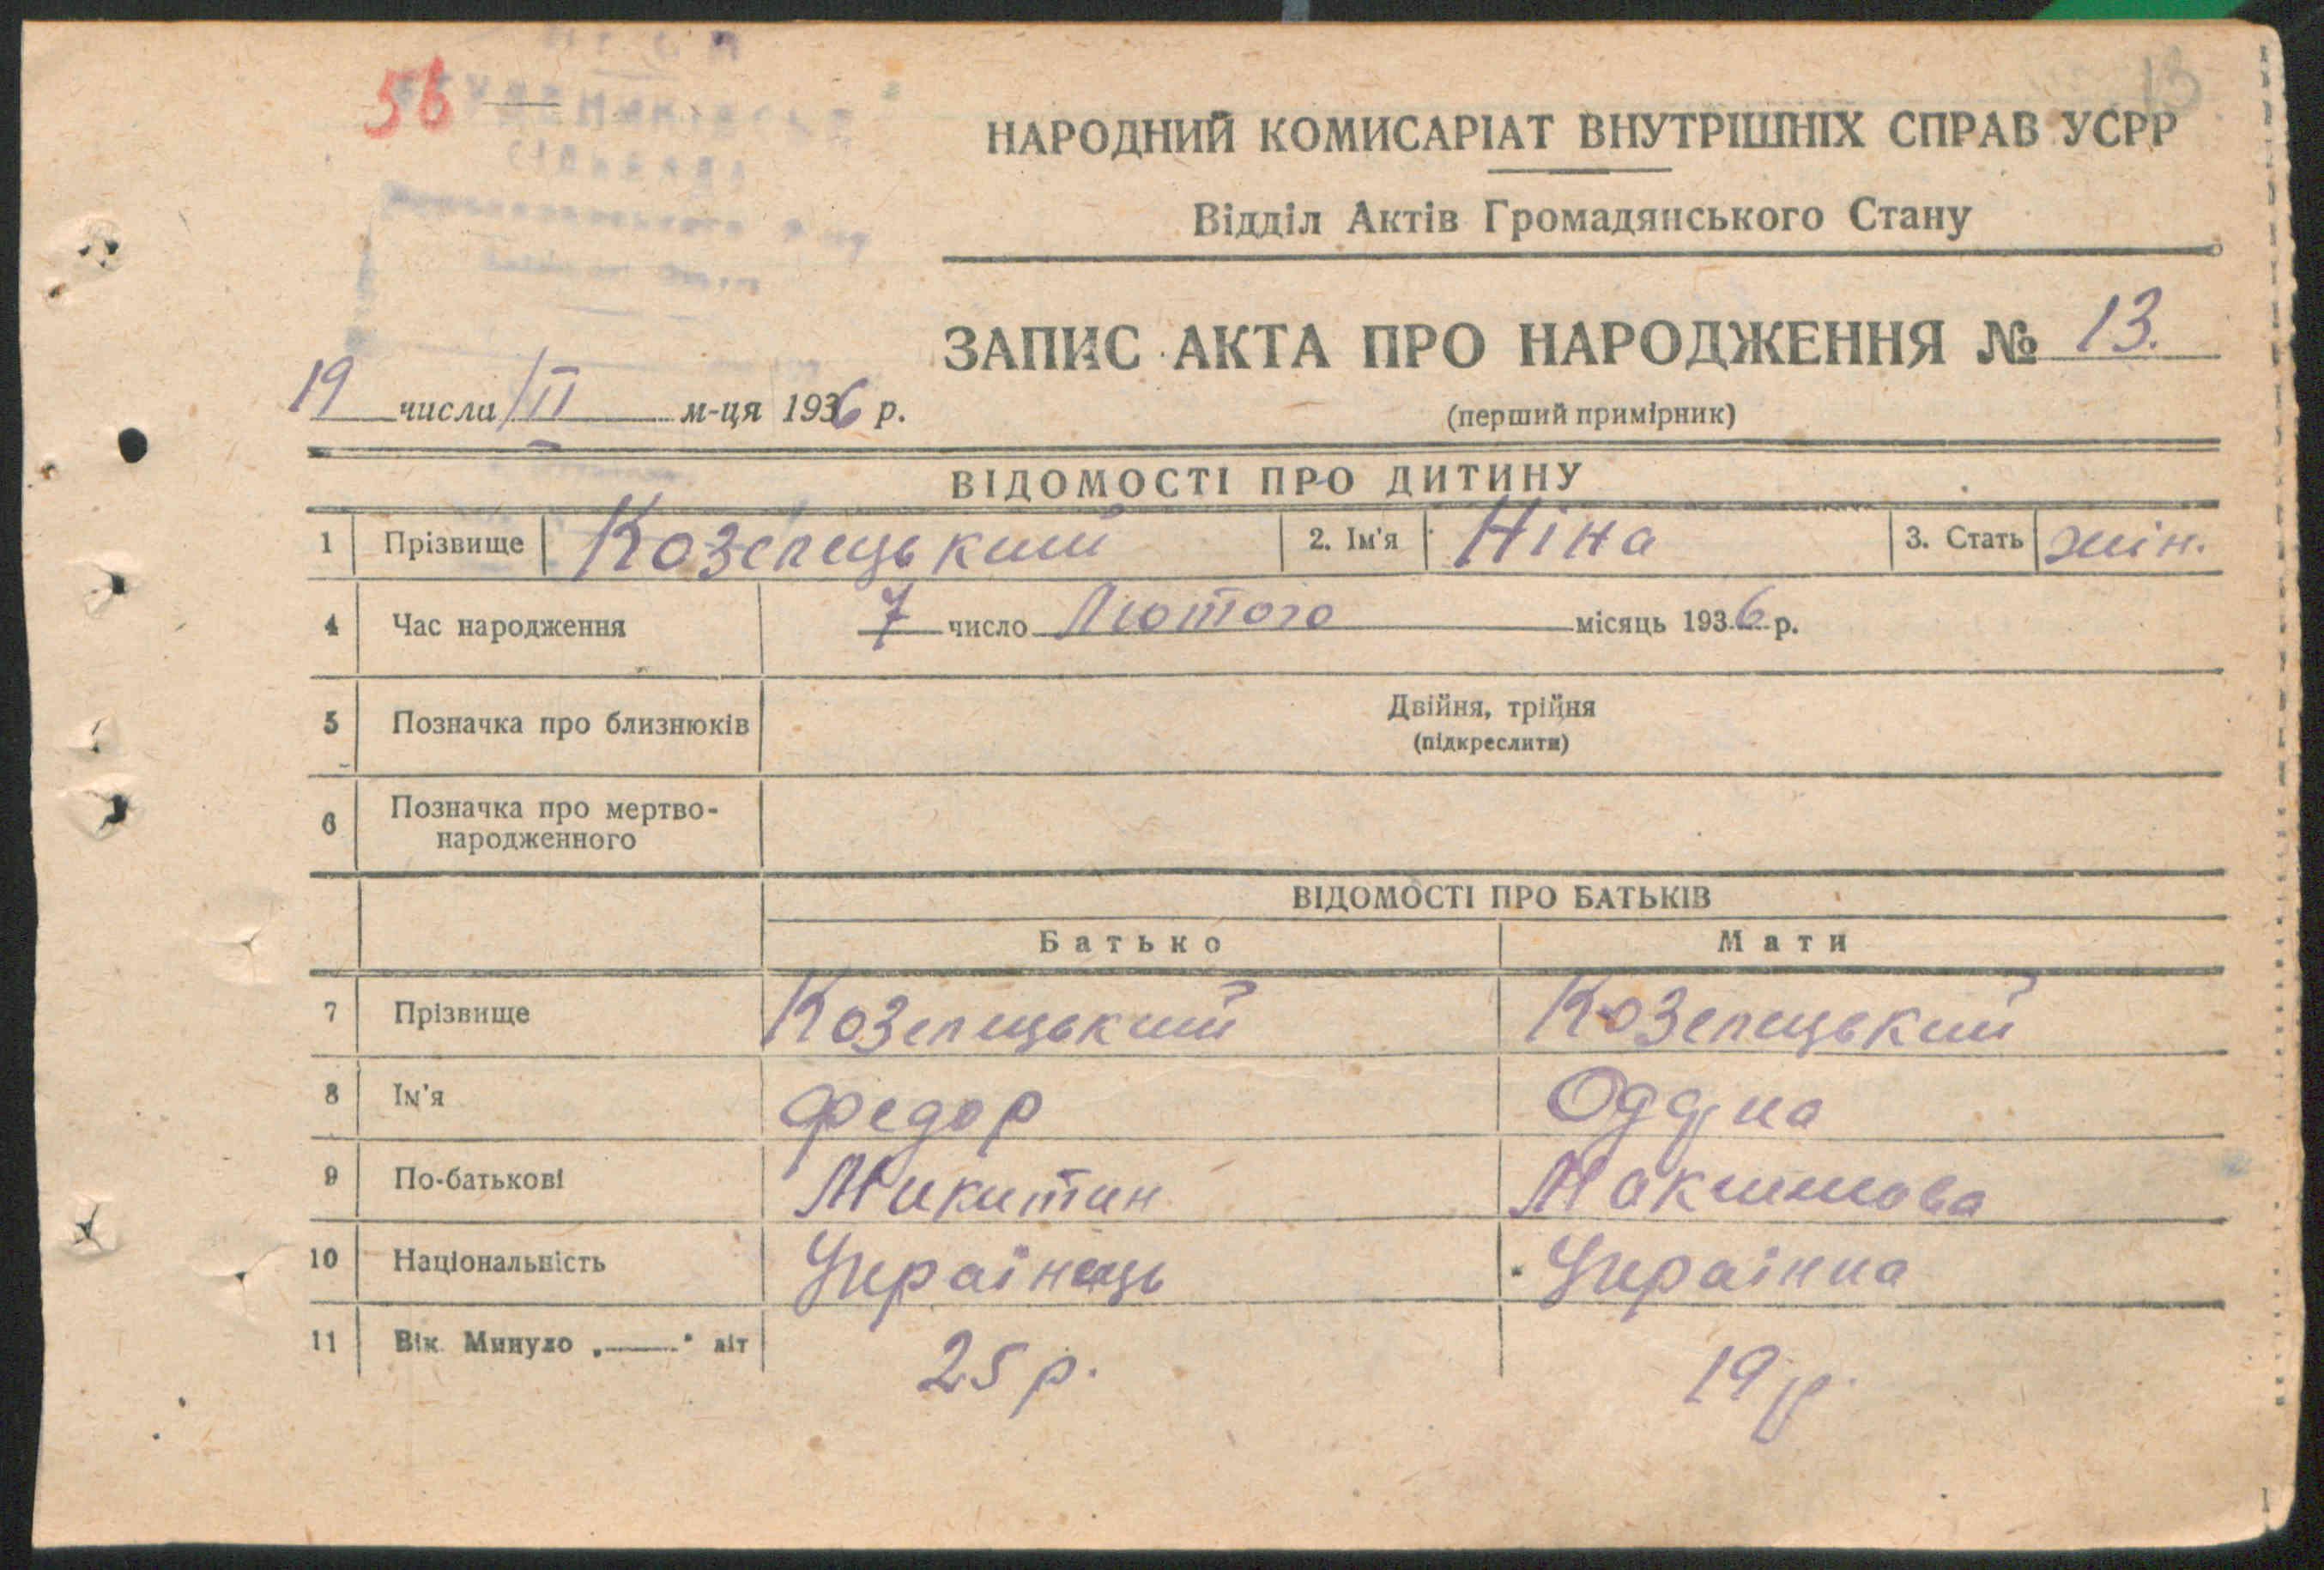 56
13
НАРОДНИЙ КОМИСАРІАТ ВНУТРІШНІХ СПРАВ УСРР
Відділ Актів Громадянського Стану
ЗАПИС АКТА ПРО НАРОДЖЕННЯ № 13.
19 числа II м-ця 1936 р.
(перший примірник)
ВІДОМОСТІ ПРО ДИТИНУ
1 Прізвище Козелецький 2. Ім'я Ніна 3. Стать жін.
4 Час народження 7 число Лютого місяць 1936 р.
5 Позначка про близнюків Двійня, трійня
(підкреслити)
6 Позначка про мертво-
народженного
ВІДОМОСТІ ПРО БАТЬКІВ
Батько Мати
7 Прізвище Козелецький Козелецький
8 Ім'я Федор
9 По-батькові Микитин Максимова
10 Національність Українець Українка
11 Вік Минуло „——" літ 25 р. 19 р.